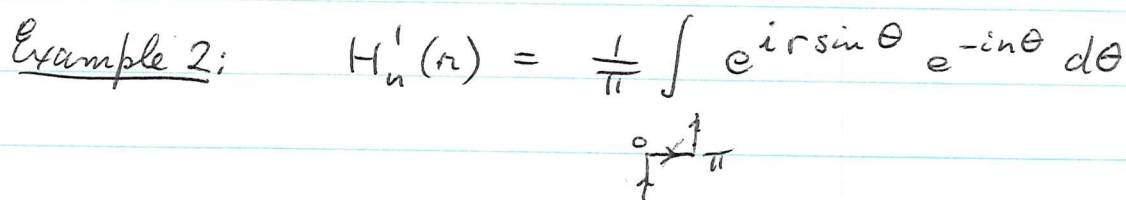 Example 2: H_n^1(r) = 1/π ∫ e^{i r sin θ} e^{-inθ} dθ
0 π